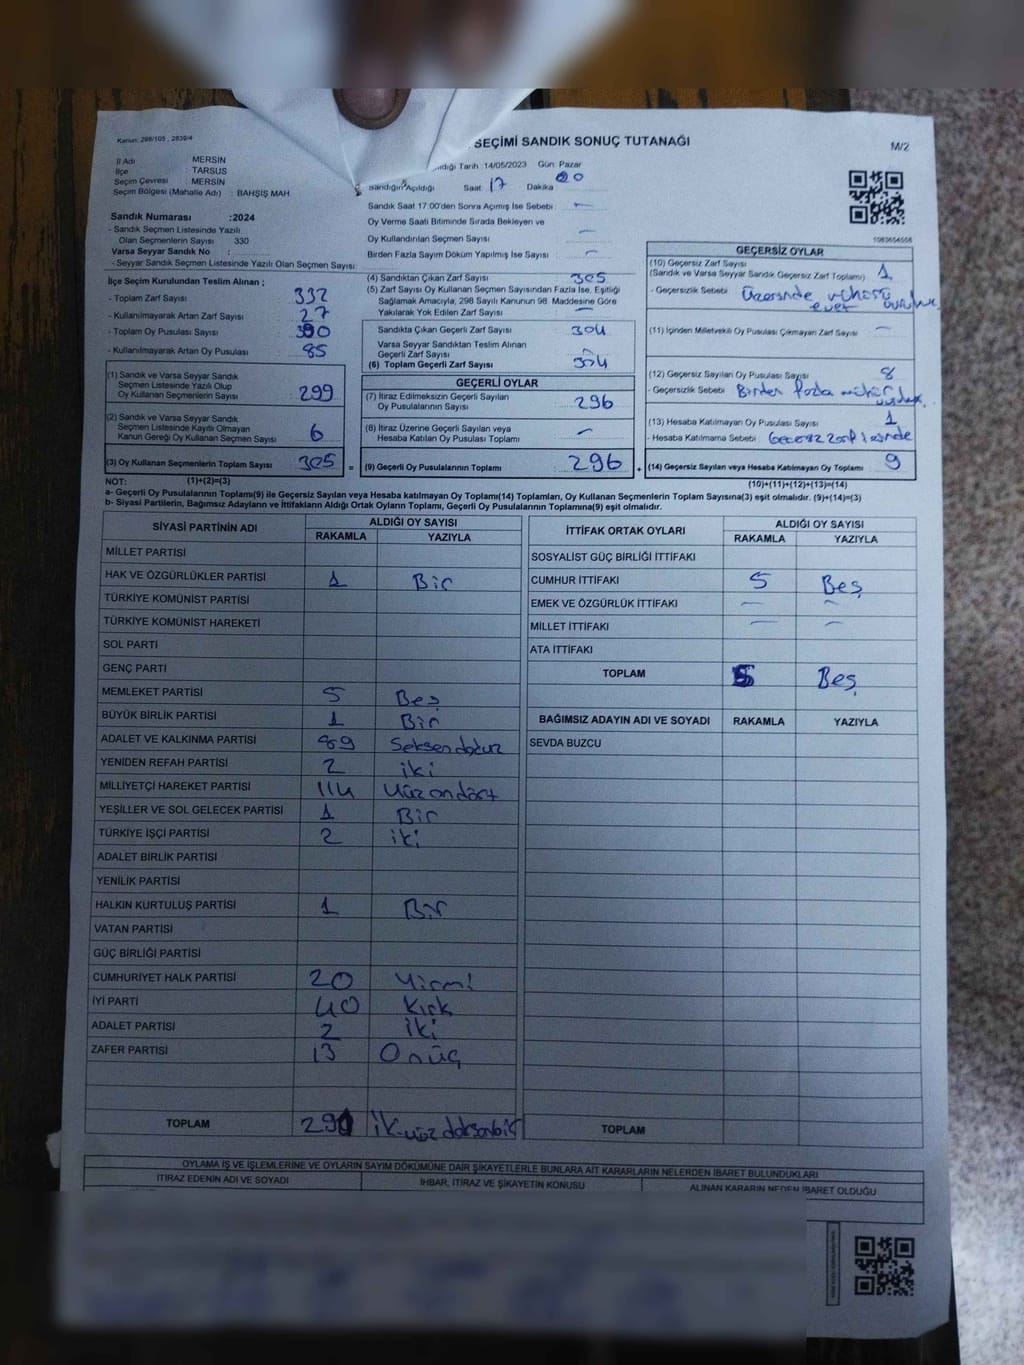 Kanun: 298/105 , 2839/4
SEÇİMİ SANDIK SONUÇ TUTANAĞI
M/2
İl Adı : MERSİN
İlçe : TARSUS
Seçim Çevresi : MERSİN
Seçim Bölgesi (Mahalle Adı) : BAHŞİŞ MAH
Tarih 14/05/2023 Gün: Pazar
Sandığın Açıldığı Saat 17 Dakika 00
Sandık Saat 17.00'den Sonra Açımış İse Sebebi : —
Oy Verme Saati Bitiminde Sırada Bekleyen ve
Oy Kullandırılan Seçmen Sayısı —
Birden Fazla Sayım Döküm Yapılmış İse Sayısı : —
Sandık Numarası : 2024
- Sandık Seçmen Listesinde Yazılı
Olan Seçmenlerin Sayısı 330
Varsa Seyyar Sandık No :
- Seyyar Seçmen Listesinde Yazılı Olan Seçmen Sayısı:
İlçe Seçim Kurulundan Teslim Alınan ;
- Toplam Zarf Sayısı 332
- Kullanılmayarak Artan Zarf Sayısı : 27
- Toplam Oy Pusulası Sayısı
- Kullanılmayarak Artan Oy Pusulası 85
(1) Sandık ve Varsa Seyyar Sandık
Seçmen Listesinde Yazılı Olup
Oy Kullanan Seçmenlerin Sayısı 299
(2) Sandık ve Varsa Seyyar Sandık
Seçmen Listesinde Kayıtlı Olmayan
Kanun Gereği Oy Kullanan Seçmen Sayısı 6
(3) Oy Kullanan Seçmenlerin Toplam Sayısı 305 =
(4) Sandıktan Çıkan Zarf Sayısı 305
(5) Zarf Sayısı Oy Kullanan Seçmen Sayısından Fazla İse, Eşitliği
Sağlamak Amacıyla, 298 Sayılı Kanunun 98. Maddesine Göre
Yakılarak Yok Edilen Zarf Sayısı : —
Sandıkta Çıkan Geçerli Zarf Sayısı 304
Varsa Seyyar Sandıktan Teslim Alınan
Geçerli Zarf Sayısı —
(6) Toplam Geçerli Zarf Sayısı 304
GEÇERLİ OYLAR
(7) İtiraz Edilmeksizin Geçerli Sayılan
Oy Pusulalarının Sayısı 296
(8) İtiraz Üzerine Geçerli Sayılan veya
Hesaba Katılan Oy Pusulası Toplamı —
(9) Geçerli Oy Pusulalarının Toplamı 296 +
1083654558
GEÇERSİZ OYLAR
(10) Geçersiz Zarf Sayısı
(Sandık ve Varsa Seyyar Sandık Geçersiz Zarf Toplamı) 1
- Geçersizlik Sebebi : Üzerinde mühürü
evet
(11) İçinden Milletvekili Oy Pusulası Çıkmayan Zarf Sayısı —
(12) Geçersiz Sayılan Oy Pusulası Sayısı 8
- Geçersizlik Sebebi Birden fazla mühür
(13) Hesaba Katılmayan Oy Pusulası Sayısı 1
- Hesaba Katılmama Sebebi : Geçersiz zarf içinde
(14) Geçersiz Sayılan veya Hesaba Katılmayan Oy Toplamı 9
(10)+(11)+(12)+(13)=(14)
NOT: (1)+(2)=(3)
a- Geçerli Oy Pusulalarının Toplamı(9) ile Geçersiz Sayılan veya Hesaba katılmayan Oy Toplamı(14) Toplamları, Oy Kullanan Seçmenlerin Toplam Sayısına(3) eşit olmalıdır. (9)+(14)=(3)
b- Siyasi Partilerin, Bağımsız Adayların ve İttifakların Aldığı Ortak Oyların Toplamı, Geçerli Oy Pusulalarının Toplamına(9) eşit olmalıdır.
SİYASİ PARTİNİN ADI ALDIĞI OY SAYISI
RAKAMLA YAZIYLA
MİLLET PARTİSİ
HAK VE ÖZGÜRLÜKLER PARTİSİ 1 Bir
TÜRKİYE KOMÜNİST PARTİSİ
TÜRKİYE KOMÜNİST HAREKETİ
SOL PARTİ
GENÇ PARTİ
MEMLEKET PARTİSİ 5 Beş
BÜYÜK BİRLİK PARTİSİ 1 Bir
ADALET VE KALKINMA PARTİSİ 89 Seksendokuz
YENİDEN REFAH PARTİSİ 2 iki
MİLLİYETÇİ HAREKET PARTİSİ 114 Yüzondört
YEŞİLLER VE SOL GELECEK PARTİSİ 1 Bir
TÜRKİYE İŞÇİ PARTİSİ 2 iki
ADALET BİRLİK PARTİSİ
YENİLİK PARTİSİ
HALKIN KURTULUŞ PARTİSİ 1 Bir
VATAN PARTİSİ
GÜÇ BİRLİĞİ PARTİSİ
CUMHURİYET HALK PARTİSİ 20 Yirmi
İYİ PARTİ 40 Kırk
ADALET PARTİSİ 2 İki
ZAFER PARTİSİ 13 Onüç
TOPLAM 291 ikiyüzdoksanbir
İTTİFAK ORTAK OYLARI ALDIĞI OY SAYISI
RAKAMLA YAZIYLA
SOSYALİST GÜÇ BİRLİĞİ İTTİFAKI
CUMHUR İTTİFAKI 5 Beş
EMEK VE ÖZGÜRLÜK İTTİFAKI — —
MİLLET İTTİFAKI — —
ATA İTTİFAKI
TOPLAM 5 Beş
BAĞIMSIZ ADAYIN ADI VE SOYADI RAKAMLA YAZIYLA
SEVDA BUZCU
TOPLAM
OYLAMA İŞ VE İŞLEMLERİNE VE OYLARIN SAYIM DÖKÜMÜNE DAİR ŞİKAYETLERLE BUNLARA AİT KARARLARIN NELERDEN İBARET BULUNDUKLARI
İTİRAZ EDENİN ADI VE SOYADI İHBAR, İTİRAZ VE ŞİKAYETİN KONUSU ALINAN KARARIN NEDEN İBARET OLDUĞU